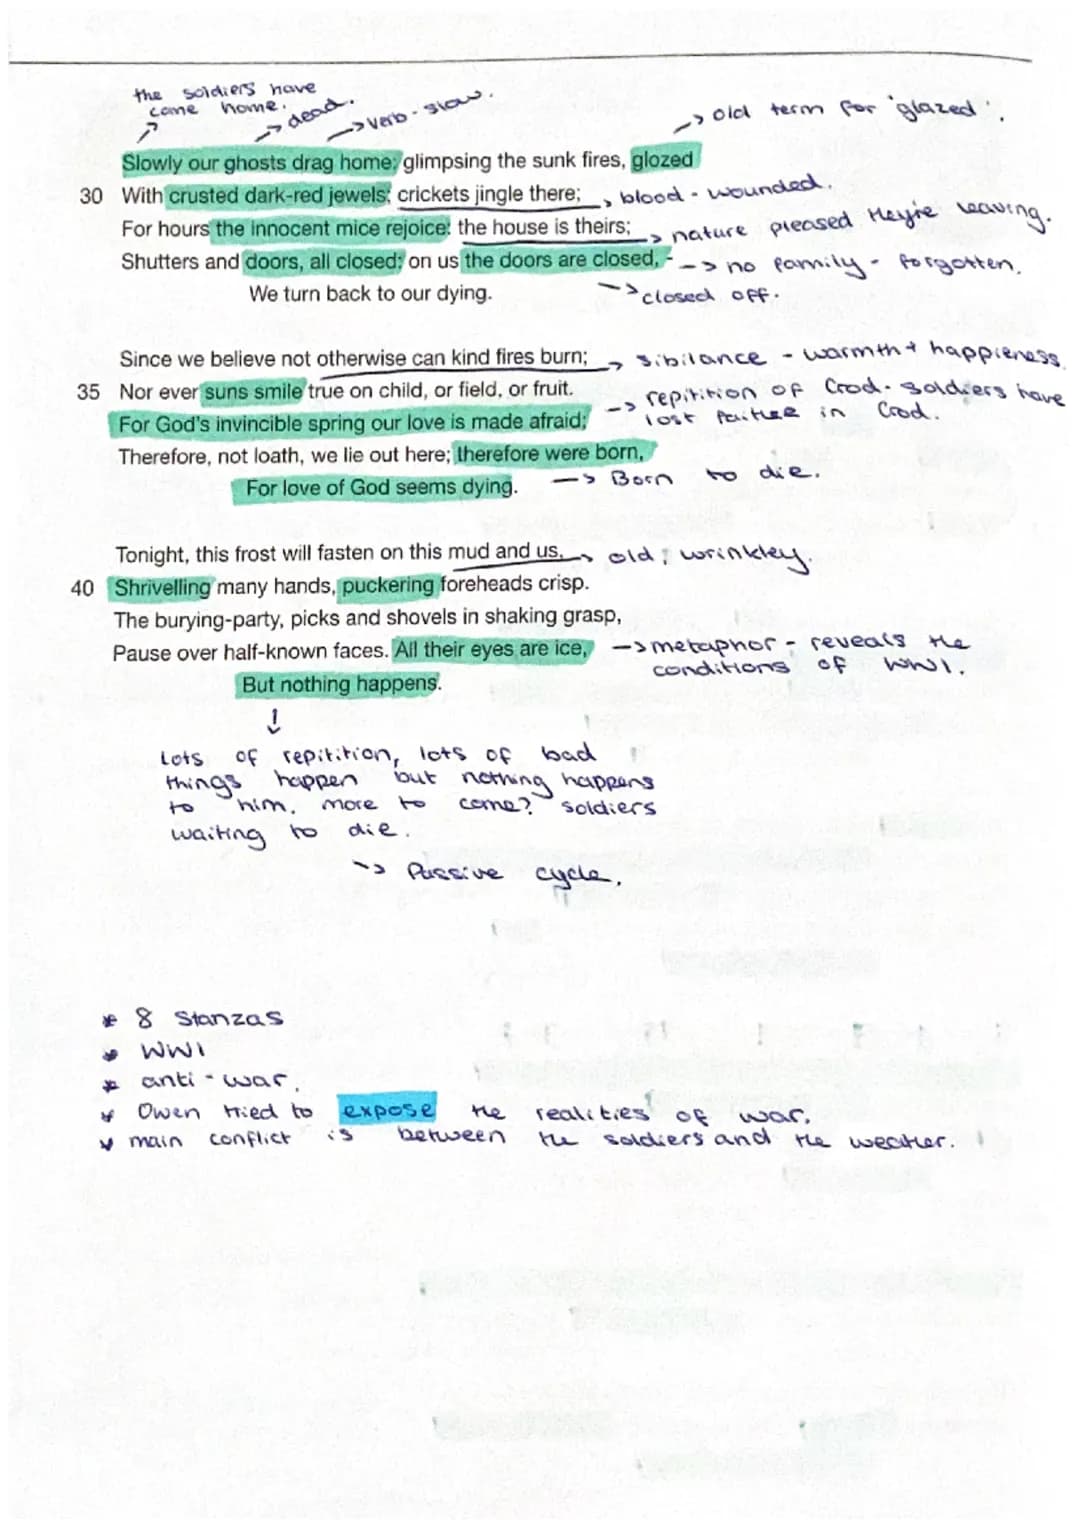 the soldiers have
come home.
→ dead.
→ verb - slow.
→ old term for 'glazed'.
Slowly our ghosts drag home: glimpsing the sunk fires, glozed
30 With crusted dark-red jewels; crickets jingle there;
→ blood - wounded.
For hours the innocent mice rejoice: the house is theirs;
→ nature pleased they're leaving.
Shutters and doors, all closed: on us the doors are closed, -
→ no family - forgotten.
We turn back to our dying.
→ closed off.
Since we believe not otherwise can kind fires burn;
→ sibilance - warmth + happieness.
35 Nor ever suns smile true on child, or field, or fruit.
→ repitition of God. soldiers have
lost faithe in God.
For God's invincible spring our love is made afraid;
Therefore, not loath, we lie out here; therefore were born,
For love of God seems dying.
→ Born to die.
Tonight, this frost will fasten on this mud and us,
→ old; wrinkley.
40 Shrivelling many hands, puckering foreheads crisp.
The burying-party, picks and shovels in shaking grasp,
Pause over half-known faces. All their eyes are ice,
→ metaphor - reveals the
conditions of WW1.
But nothing happens.
↓
Lots of repitition, lots of bad
things happen but nothing happens
to him. more to come? soldiers
waiting to die.
→ Passive cycle.
* 8 Stanzas
* WW1
* anti - war.
* Owen tried to expose the realities of war.
* main conflict is between the soldiers and the weather.